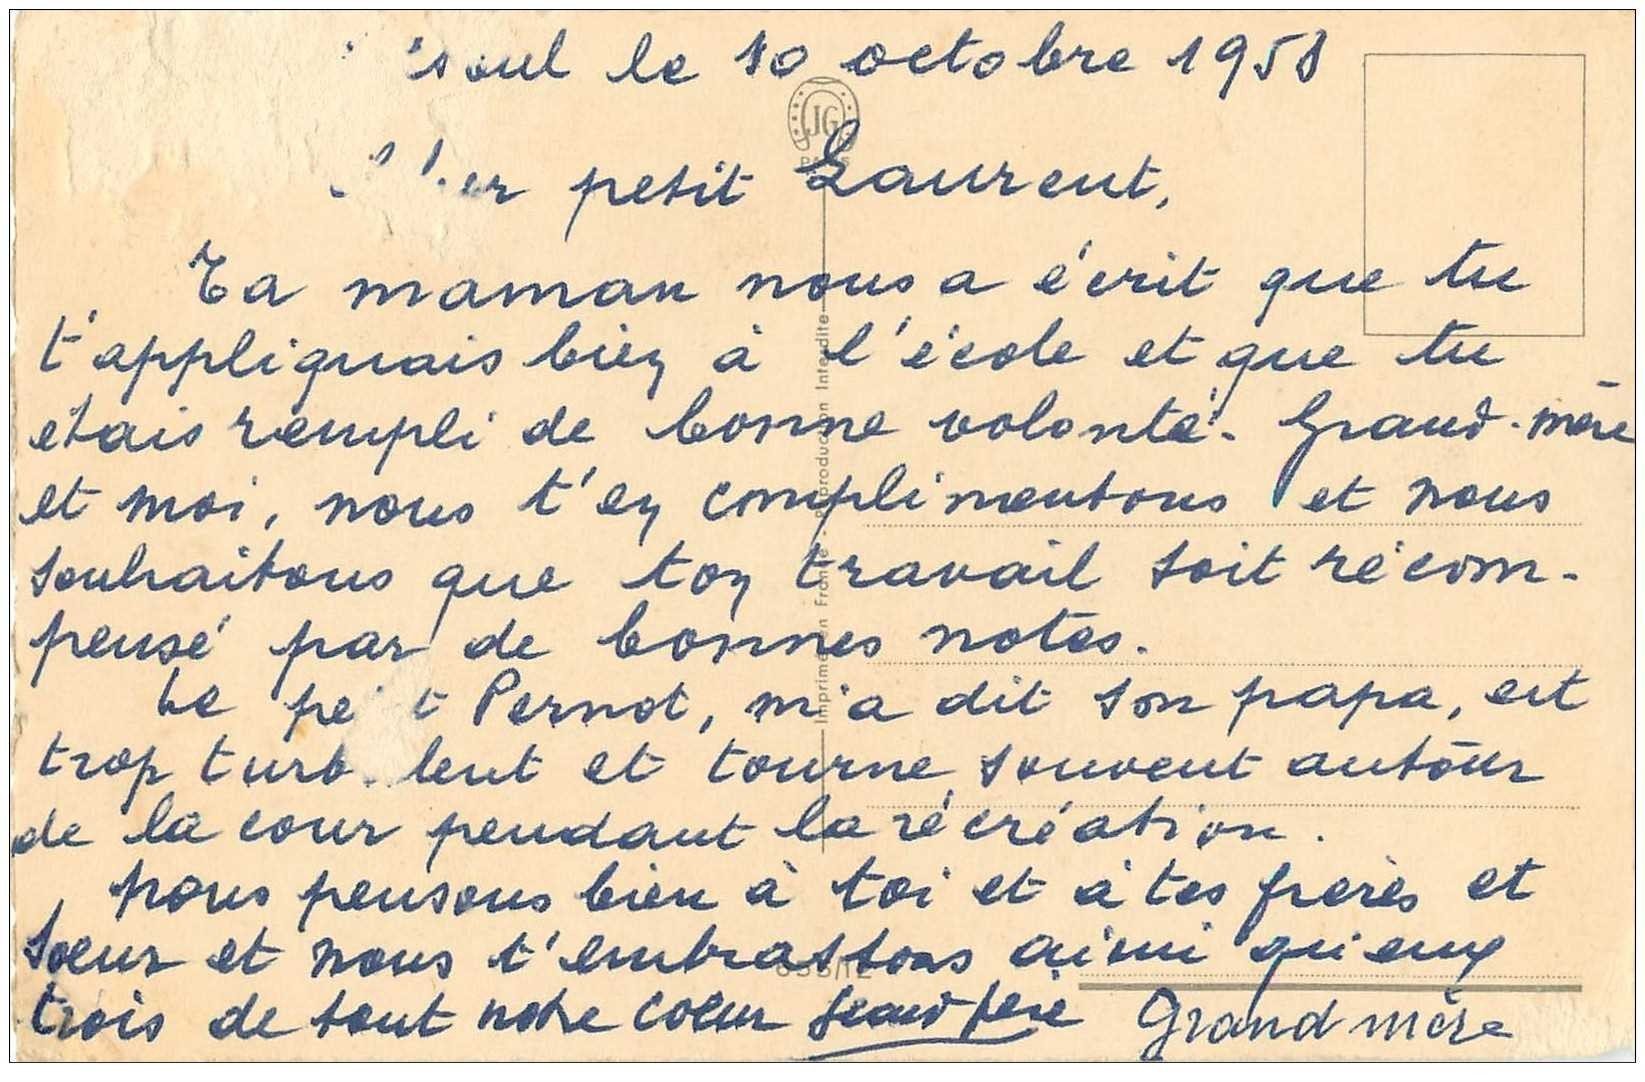 le 10 octobre 1958
JG
PARIS
petit Laurent,
Ta maman nous a écrit que tu
t'appliquais bien à l'école et que tu
etais rempli de bonne volonté. Grand-mère
et moi, nous t'en complimentons et nous
souhaitons que ton travail soit récom-
pensé par de bonnes notes.
Le Pernot, m'a dit son papa, est
trop et tourne souvent autour
de la cour pendant la récréation.
Nous pensons bien à toi et à tes frères et
soeur et nous t'embrassons ainsi qu'eux
trois de tout notre coeur Grand père Grand mère
Imprimé en France - Reproduction Interdite